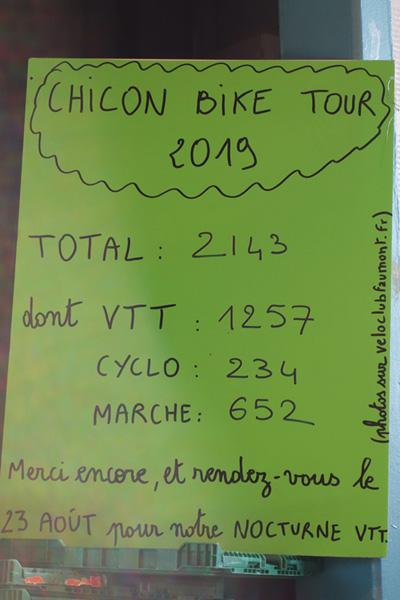 CHiCON BiKE TOUR
2019
TOTAL : 2143
dont VTT : 1257
CYCLO : 234
MARCHE : 652
Merci encore, et rendez-vous le
23 AOÚT pour notre NOCTURNE VTT.
(photos sur veloclubfaumont.fr)